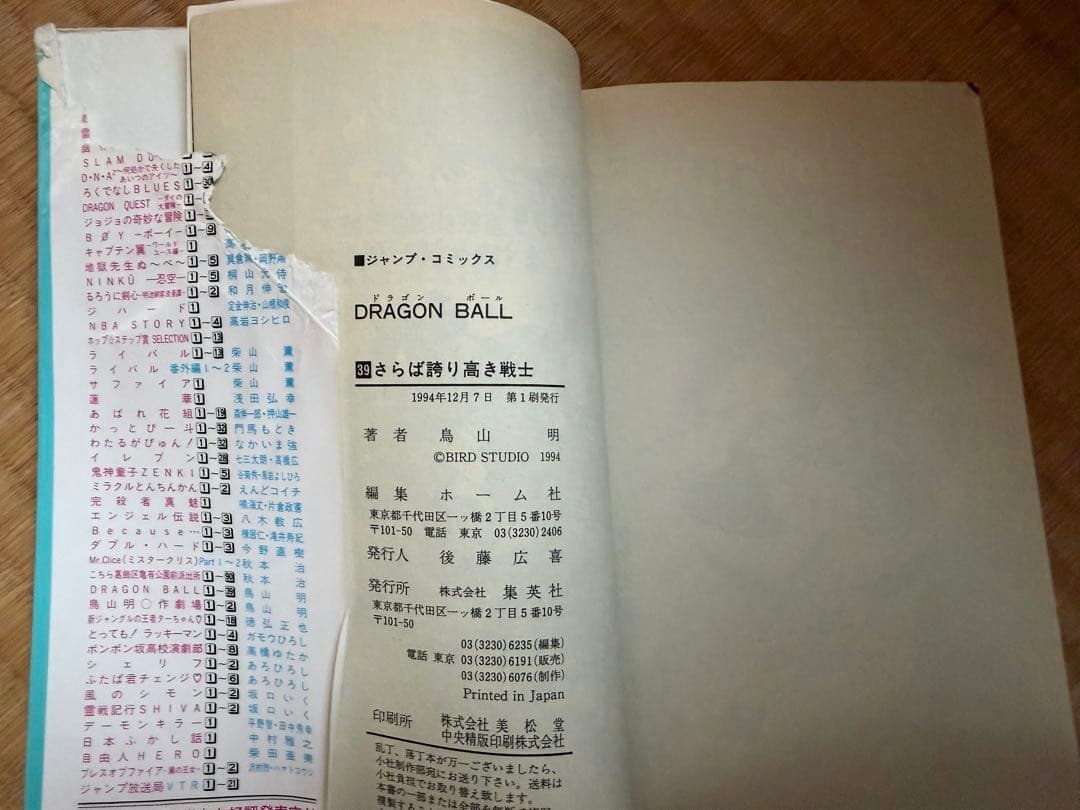 SLAM DU
D・N・A² ～何処かで失くしたあいつのアイツ～ 1～4
ろくでなしBLUES 1～
DRAGON QUEST ―ダイの大冒険― 1～
ジョジョの奇妙な冒険 1～
BØY ―ボーイ― 1～9
キャプテン翼 ―ワールドユース編― 1
地獄先生ぬ～べ～ 1～5 真倉翔・岡野剛
NINKŪ ―忍空― 1～5 桐山光侍
るろうに剣心 ―明治剣客浪漫譚― 1～2 和月伸宏
ジハード 1 定金伸治・山根和俊
NBA STORY 1～4 高岩ヨシヒロ
ホップ☆ステップ賞 SELECTION 1～13
ライバル 1～13 柴山薫
ライバル 番外編1～2 柴山薫
サファイア 1 柴山薫
蓮華 1 浅田弘幸
あばれ花組 1～19 森伸一郎・押山雄一
かっとび一斗 1～32 門馬もとき
わたるがぴゅん! 1～32 なかいま強
イレブン 1～28 七三太朗・高橋広
鬼神童子ZENKI 1～5 谷菊秀・黒岩よしひろ
ミラクルとんちんかん 1～2 えんどコイチ
完殺者真魅 1 鳴海丈・片倉政憲
エンジェル伝説 1～3 八木教広
Because… 1～3 棟居仁・滝井寿紀
ダブル・ハード 1～3 今野直樹
Mr.Clice(ミスタークリス) Part 1～2 秋本治
こちら葛飾区亀有公園前派出所 1～90 秋本治
DRAGON BALL 1～39 鳥山明
鳥山明○作劇場 1～2 鳥山明
新ジャングルの王者ターちゃん♡ 1～18 徳弘正也
とっても!ラッキーマン 1～4 ガモウひろし
ボンボン坂高校演劇部 1～8 高橋ゆたか
シェリフ 1～2 あろひろし
ふたば君チェンジ♡ 1～6 あろひろし
風のシモン 1～2 坂口いく
霊戦記行SHIVA 1～2 坂口いく
デーモンキラー 1 平野智・田中秀幸
日本ふかし話 1 中村雅之
自由人HERO 1 柴田亜美
ブレスオブファイア ―翼の王女― 1～2
ジャンプ放送局 VTR 1～21
■ジャンプ・コミックス
ドラゴン ボール
DRAGON BALL
39 さらば誇り高き戦士
1994年12月7日 第1刷発行
著者 鳥山 明
©BIRD STUDIO 1994
編集 ホーム社
東京都千代田区一ッ橋2丁目5番10号
〒101-50 電話 東京 03(3230)2406
発行人 後藤広喜
発行所 株式会社 集英社
東京都千代田区一ッ橋2丁目5番10号
〒101-50
03(3230)6235(編集)
電話 東京 03(3230)6191(販売)
03(3230)6076(制作)
Printed in Japan
印刷所 株式会社 美松堂
中央精版印刷株式会社
乱丁、落丁本が万一ございましたら、
小社制作部宛にお送り下さい。送料は
小社負担でお取り替え致します。
本書の一部または全部を無断で
複製する